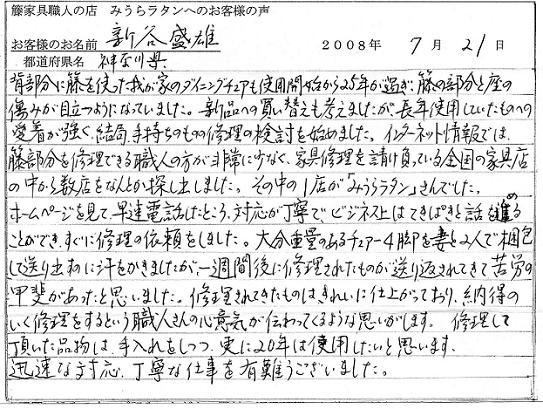 藤家具職人の店 みうらラタンへのお客様の声
お客様のお名前 新谷盛雄 2008年 7月 21日
都道府県名 神奈川県
背部分に籐を使った我が家のダイニングチェアも使用開始から25年が過ぎ、籐の部分と座の
傷みが目立つようになっていました。新品への買い替えも考えましたが、長年使用していたものへの
愛着が強く、結局、手持ちのもの修理の検討を始めました。インターネット情報では、
籐部分を修理できる職人の方が非常に少なく、家具修理を請け負っている全国の家具店
の中から数店をなんとか探し出しました。その中の1店が「みうらラタン」さんでした。
ホームページを見て、早速電話したところ、対応が丁寧でビジネス上はてきぱきと話を進める
ことができ、すぐに修理の依頼をしました。大分重量のあるチェアー4脚を妻と2人で梱包
して送り出すのに汗をかきましたが、一週間後に修理されたものが送り返されてきて苦労の
甲斐があったと思いました。修理されてきたものは、きれいに仕上がっており、納得の
いく修理をするという職人さんの心意気が伝わってくるような思いがします。修理して
頂いた品物は、手入れをしつつ、実に20年は使用したいと思います。
迅速な対応、丁寧な仕事を有難うございました。